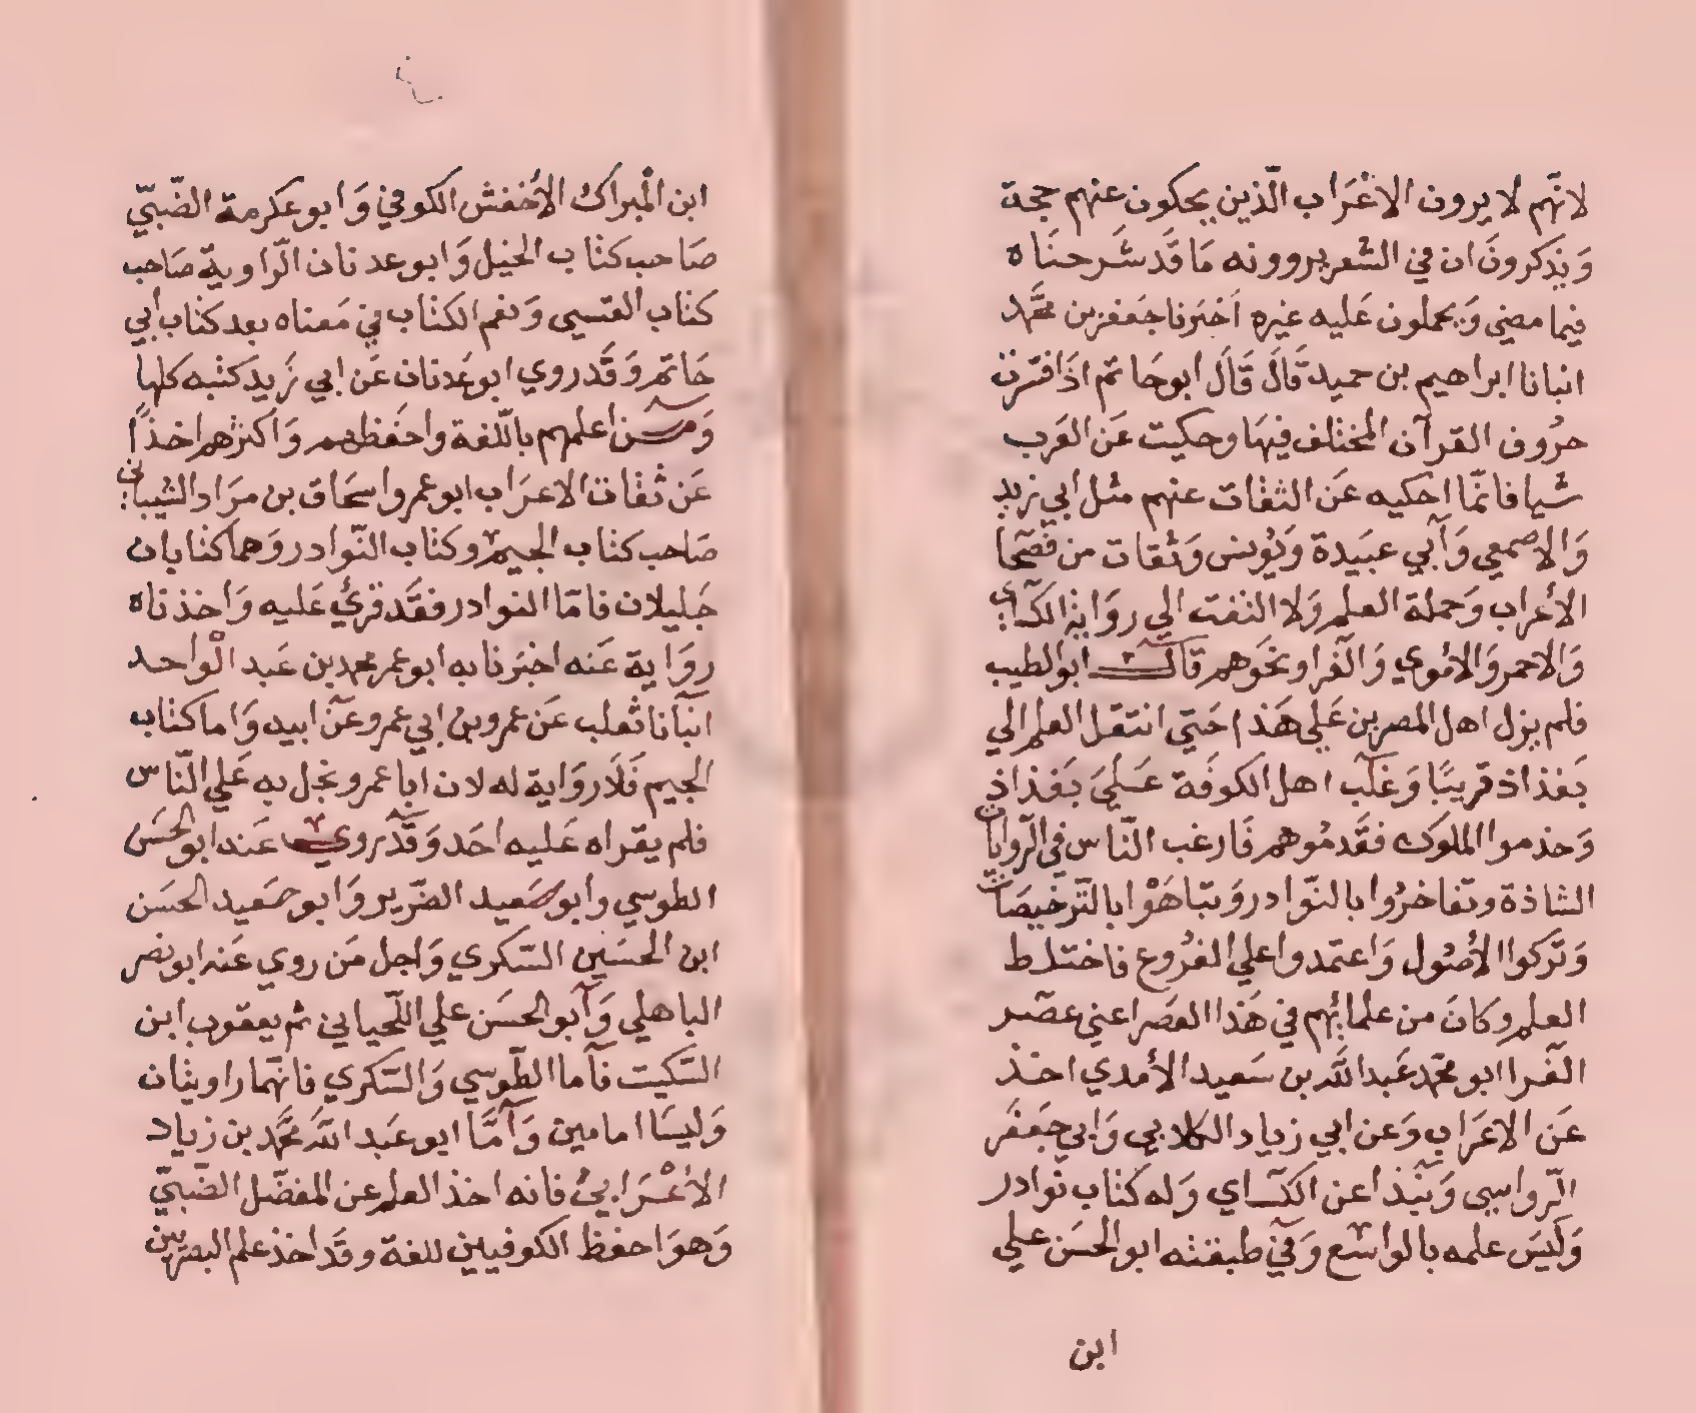 لانّهم لا يرون الاعْرَاب الّذين يحكون عنهم حجة
وَيذكرونَ ان في الشعر يروونه مَا قَد شَرحنَاه
فيما مضي وَيحملون عَليه غيره اَخبَرنا جَعفر بن محمَّد
انبانا ابراهيم بن حميد قَالَ قَالَ ابو حَاتم اذَا فترت
حرُوف القرآن المختلف فيهَا وحكيت عَن العَرب
شيا فانّما احكيه عَن الثقات عنهم مثل ابي زيد
وَالاصمعي وَآبي عبَيدة وَيُونس وَثقات من فصَحا
الأعراب وَحملة العلم وَلا النفت الي روَاية الكسَاي
وَالاحمر وَالامُوي وَالفَرا ونحَوهم قاَل ابو الطيب
فلم يزل اهل المصرين عَلي هَذا حَتي انتقل العلم الي
بَغذاذ قريبًا وَغلَب اهل الكوفَة عَلَيَ بَغذاذ
وَخذموا الملوك فقَدمُوهم فَارغب النّاس في الرّوايات
الشاذة وتفاخرُوا بالنّوادر وَتبّاهَوْا بالتّرخيصَات
وَتَركوا الأصُول وَاعتمدوا علي الفرُوع فاختلط
العلم وكانَ من علمائهم في هَذا العصَر اعني عصَر
الفَرا ابو محمّد عَبد اللَّه بن سَعيد الأمدي اخذ
عَن الاعَرَاب وَعن ابي زياد الكلابي وَابي جَعفَر
الرّواسي وَنبَذا عن الكسَاي وَله كتاب نَوادر
وَلَيسَ علمه بالواسع وَفيَ طبقته ابو الحسَن علي
ابن
ابن المُبراك الأخفش الكوفي وَابو عكرمة الضّبيّ
صَاحب كتاب الخيل وَابو عدنان الرّاوية صَاحب
كتاب القسي وَنعم الكتاب في مَعناه بعد كتاب أبي
حَاتم وَقَد روي ابو عَدنان عَن ابي زَيد كتبه كلها
وَمن اعلمهم باللّغة واحفَظهم وَاكثرهم اخذاً
عَن ثقات الاعرَاب ابو عمرو اسحَاق بن مرَاد الشيباني
صَاحب كتاب الجيم وكتاب النّوادر وَهمَا كتابان
جَليلان فامّا النوادر فقَد قرئ عَليه وَاخذناه
روَاية عَنه اخبرَنا به ابو عمر محمد بن عَبد الْواحد
انبآنا ثعلب عَن عمرو بن ابي عمرو عَن ابيه وَاما كتاب
الجيم فَلَا روَاية له لان ابا عمرو بخل به عَلي النّاس
فلم يقراه عَليه احَد وَقَد روي عَنه ابو الحسَن
الطوسي وابو صَعيد الضّرير وَابو صَعيد الحسَن
ابن الحسَين السّكري وَاجل مَن روي عَنه ابو نصر
الباهلي وَآبو الحسَن علي اللّحياني ثم يعقوب ابن
السّكيت فآما الطّوسي وَالسّكري فانهَما راويتان
وَليسَا امامين وَآمَّا ابو عَبد اللَّه محمَّد بن زياد
الأعْرَابيُ فانه اخذ العلم عن المفضّل الضّبيّ
وَهوَ احفظ الكوفيين للغة وقَد اخذ علم البصريين